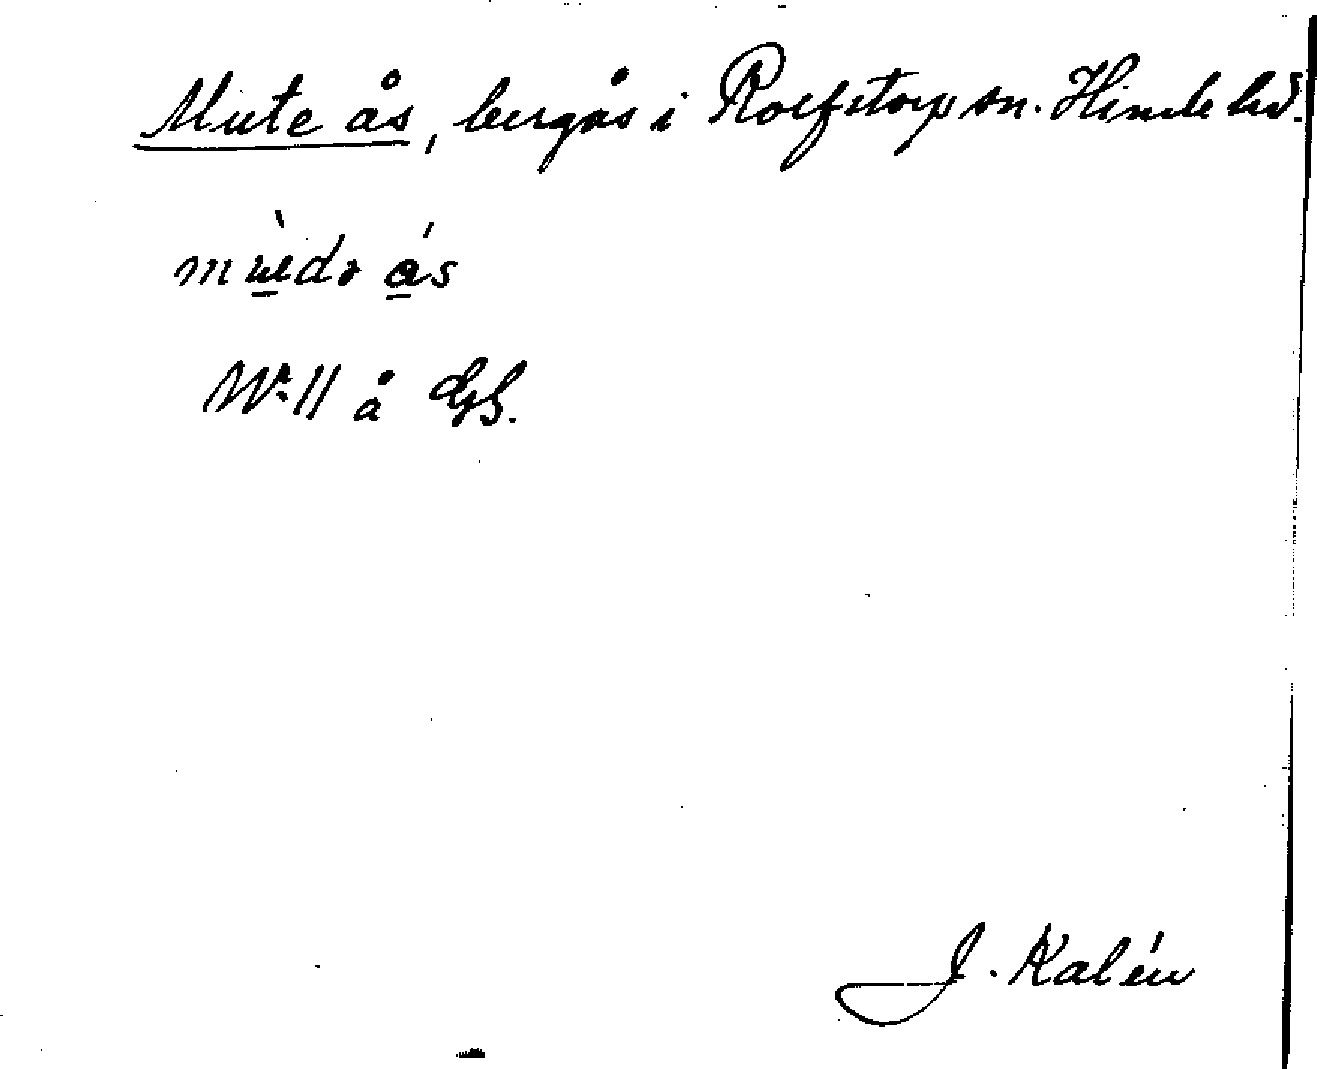 Mute ås, bergås i Rolfstorps sn. Himle hd.
mùdə ás
Nr 11 å GS.
J. Kalén